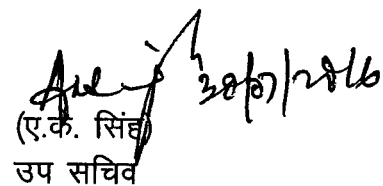 30/07/2016
(ए.के. सिंह)
उप सचिव